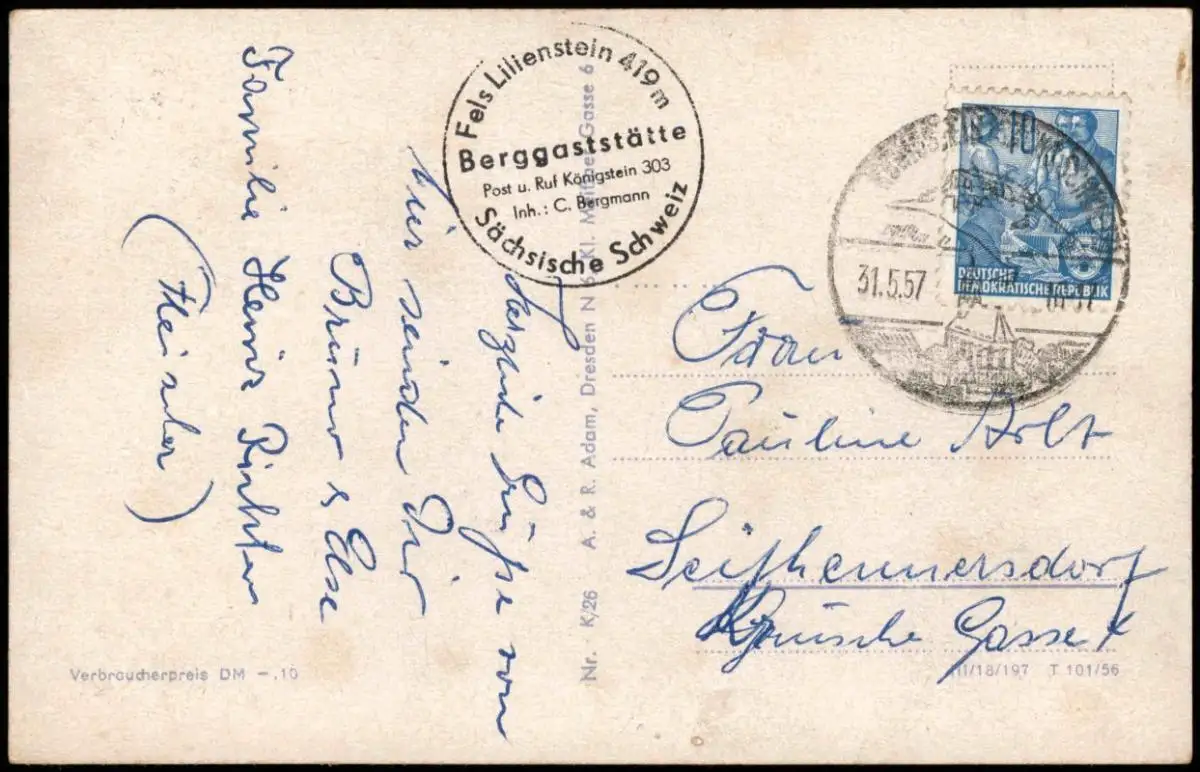 Fels Lilienstein 419m
Berggaststätte
Post u. Ruf Königstein 303
Inh.: C. Bergmann
Sächsische Schweiz
Herzliche Grüße von
hier senden Dir
Bruno & Else
Familie Heinz Richter
10
DEUTSCHE
DEMOKRATISCHE REPUBLIK
31.5.57
Frau
Pauline
Seifhennersdorf
Gasse
Nr. K/26 A. & R. Adam, Dresden N 6, Kl. Gasse 6
Verbraucherpreis DM –.10
III/18/197 T 101/56